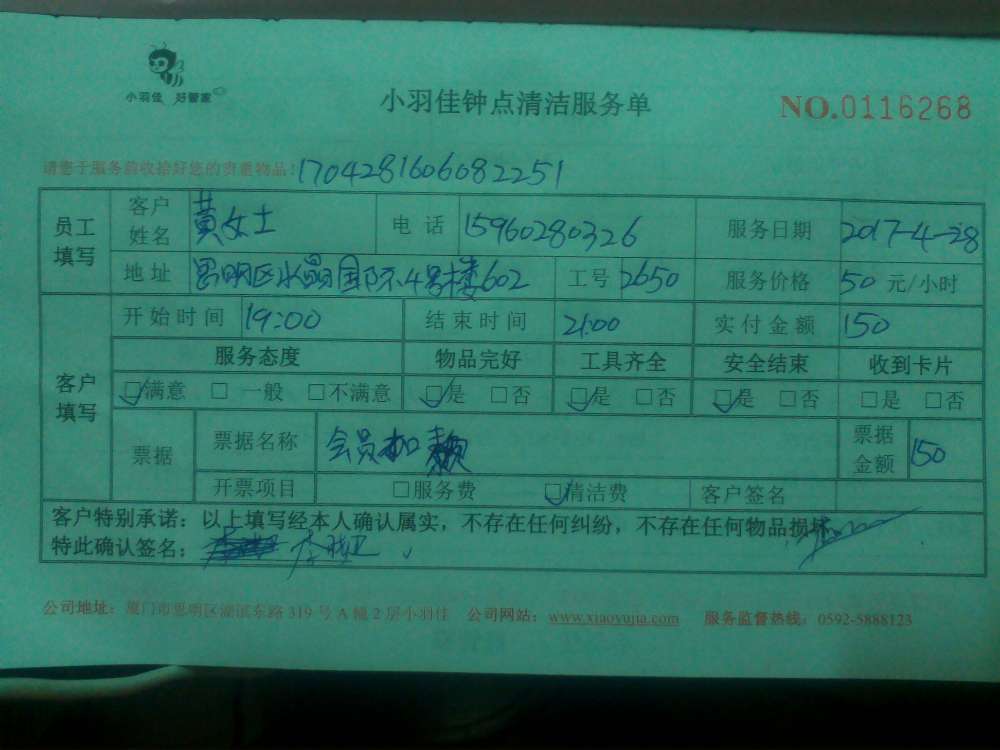 小羽佳 好管家
小羽佳钟点清洁服务单 NO.0116268
请您于服务前收拾好您的贵重物品！1704281606082251
员工填写 客户姓名 黄女士 电话 15960280326 服务日期 2017-4-28
地址 思明区水晶国际4号楼602 工号 2650 服务价格 50 元/小时
客户填写 开始时间 19:00 结束时间 21:00 实付金额 150
服务态度 物品完好 工具齐全 安全结束 收到卡片
☑满意 □一般 □不满意 ☑是 □否 ☑是 □否 ☑是 □否 □是 □否
票据 票据名称 会员加 票据金额 150
开票项目 □服务费 ☑清洁费 客户签名
客户特别承诺：以上填写经本人确认属实，不存在任何纠纷，不存在任何物品损坏，
特此确认签名：
公司地址：厦门市思明区湖滨东路 319 号 A 幢 2 层小羽佳 公司网站：www.xiaoyujia.com 服务监督热线：0592-5888123